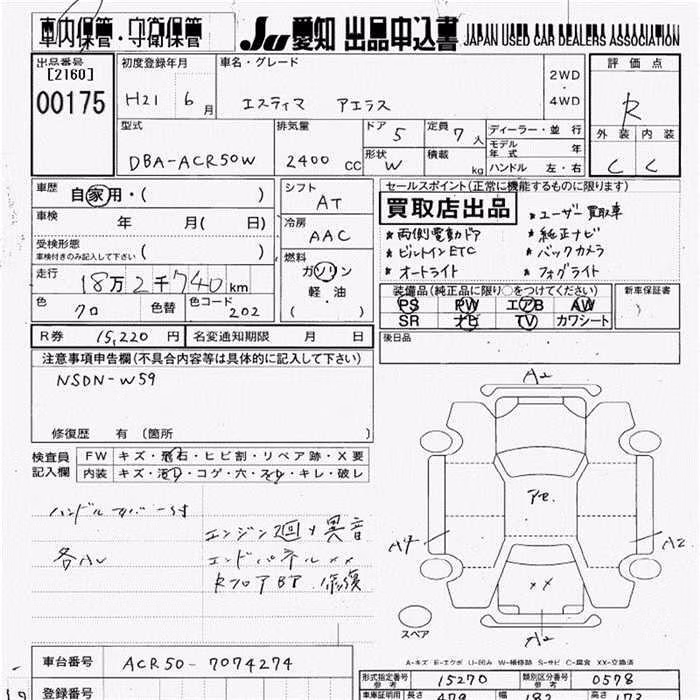 車内保管・守衛保管
JU 愛知 出品申込書 JAPAN USED CAR DEALERS ASSOCIATION
出品番号
[2160]
00175
初度登録年月
H21 6月
車名・グレード
エスティマ アエラス
2WD
・
4WD
評価点
R
外装 内装
C C
型式
DBA-ACR50W
排気量
2400 CC
ドア 5
形状 W
定員 7人
積載 kg
ディーラー・並行
モデル年式 年
ハンドル 左・右
車歴 自家用・( )
車検 年 月( 日)
受検形態
車検付きのみ記入して下さい ( )
走行 18万2千740km
色 クロ 色替 色コード 202
シフト AT
冷房 AAC
燃料
ガソリン
軽・油
( )
セールスポイント(正常に機能するものに限ります)
買取店出品
*ユーザー買取車
*両側電動ドア *純正ナビ
*ビルトインETC *バックカメラ
*オートライト *フォグライト
装備品(純正品に限り○をつけてください)
PS PW エアB AW
SR ナビ TV カワシート
新車保証書
後日品
R券 15,220円 名変通知期限 月 日
注意事項申告欄(不具合内容等は具体的に記入して下さい)
NSDN-W59
修復歴 有 (箇所 )
検査員記入欄
FW キズ・飛石・ヒビ割・リペア跡・X要
内装 キズ・汚れ・コゲ・穴・スレ・キレ・破レ
ハンドルカバー付
エンジン回り異音
各小
エンドパネルXX
RフロアBP 修復
A2
アe.
A4
A2
XX
A2
スペア
A-キズ E-エクボ U-凹み W-補修跡 S-サビ C-腐食 XX-交換済
車台番号 ACR50-7074274
登録番号
形式指定番号 参考 15270 類別区分番号 参考 0578
車庫証明用 長さ 479 幅 182 高さ 173